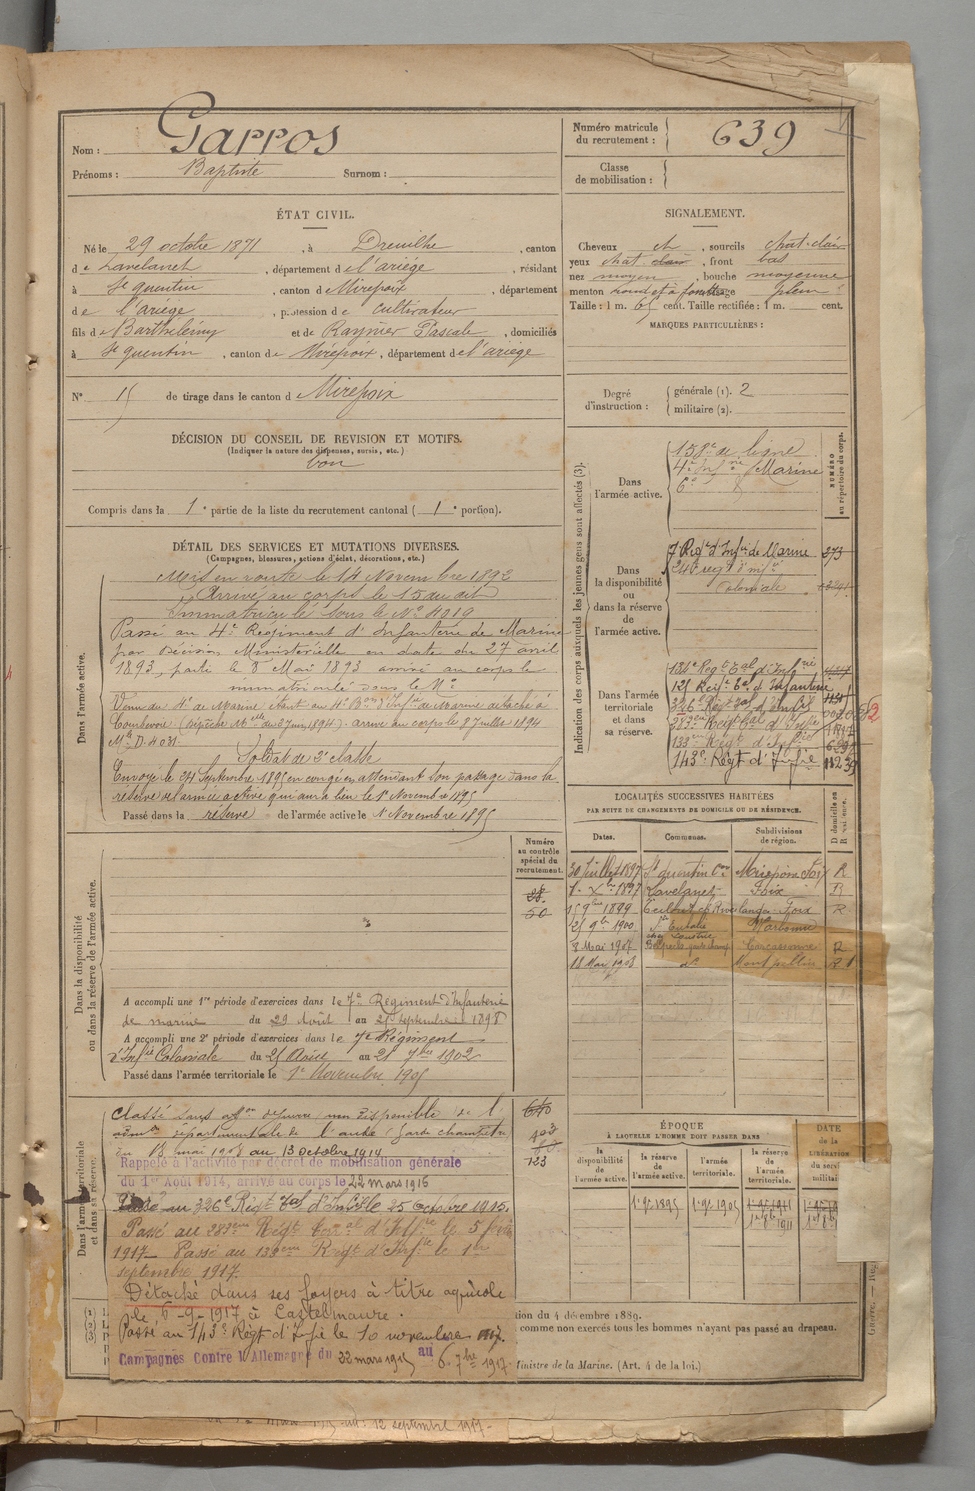 Nom : Garros
Prénoms : Baptiste Surnom :
Numéro matricule
du recrutement : 639
Classe
de mobilisation :
ÉTAT CIVIL.
Né le 29 octobre 1871, à Dreuilhe, canton
de Lavelanet, département de l'ariége, résidant
à St quentin, canton de Mirepoix, département
de l'ariége, profession de cultivateur
fils de Barthélémy et de Raynier Pascale, domiciliés
à St quentin, canton de Mirepoix, département de l'ariége
N° 15 de tirage dans le canton de Mirepoix
DÉCISION DU CONSEIL DE REVISION ET MOTIFS.
(Indiquer la nature des dispenses, sursis, etc.)
bon
Compris dans la 1e partie de la liste du recrutement cantonal (1e portion).
SIGNALEMENT.
Cheveux ch, sourcils chat-clair
yeux chat. clair, front bas
nez moyen, bouche moyenne
menton rond et à fossette visage plein
Taille : 1 m. 65 cent. Taille rectifiée : 1 m. cent.
MARQUES PARTICULIÈRES :
Degré
d'instruction :
générale (1). 2
militaire (2).
DÉTAIL DES SERVICES ET MUTATIONS DIVERSES.
(Campagnes, blessures, actions d'éclat, décorations, etc.)
Dans l'armée active.
Mis en route le 14 Novembre 1892
Arrivé au corps le 15 au dit
Immatriculé sous le N° 4019
Passé au 4e Régiment d'Infanterie de Marine
par Décision Ministérielle en date du 27 avril
1893, parti le 8 Mai 1893 arrivé au corps le
immatriculé sous le N°
Venu du 4e de Marine étant au 4e Bon d'Infie de Marine détaché à
Courbevoie (Dépêche Mlle du 27 juin 1894) arrivé au corps le 8 juillet 1894
Soldat de 2e classe
Envoyé le 24 Septembre 1895 en congé en attendant son passage dans la
réserve de l'armée active qui aura lieu le 1er Novembre 1895
Passé dans la réserve de l'armée active le 1 Novembre 1895
Indication des corps auxquels les jeunes gens sont affectés (3).
NUMÉRO
au répertoire du corps.
Dans
l'armée active.
158e de ligne
4e Infrie Marine
6e
Dans
la disponibilité
ou
dans la réserve
de
l'armée active.
7 Regt d'Infie de Marine 273
24e regt d'Infie
Coloniale
Dans l'armée
territoriale
et dans
sa réserve.
134e Regt Tal d'Infrie
121 Regt Tal d'Infanterie
326e Regt Tal d'Infie
283eme Regt Tal d'Infie
133eme Regt d'Infie
143e Régt d'Infie 11239
LOCALITÉS SUCCESSIVES HABITÉES
PAR SUITE DE CHANGEMENTS DE DOMICILE OU DE RÉSIDENCE.
Dates. Communes. Subdivisions
de région. D domicile ou
R résidence.
30 Juillet 1897 St quentin Mirepoix Foix R
1er Xbre 1897 Lavelanet Foix R
15 9bre 1899 Foix R
25 9bre 1900 Ste Eulalie Narbonne
8 Mai 1907 garde champ Carcassonne R
18 Mai 1908 do Montpellier R
Dans la disponibilité
ou dans la réserve de l'armée active.
Numéro
au contrôle
spécial du
recrutement.
50
A accompli une 1re période d'exercices dans le 7e Régiment d'Infanterie
de marine du 29 Août au 25 septembre 1898
A accompli une 2e période d'exercices dans le 7e Régiment
d'Infie Coloniale du 25 Août au 21 7bre 1902
Passé dans l'armée territoriale le 1er Novembre 1905
Dans l'armée territoriale
et dans sa réserve.
Classé sans affon depuis non disponible de l'
admon départementale de l'aude (garde champêtre)
du 18 mai 1908 au 13 octobre 1914
Rappelé à l'activité par décret de mobilisation générale
du 1er Août 1914, arrivé au corps le 22 mars 1915
Passé au 326e Régt Tal d'Infie le 25 octobre 1915.
Passé au 283eme Régt Terral d'Infie le 5 février
1917 Passé au 133eme Régt d'Infie le 1er
septembre 1917.
Détaché dans ses foyers à titre agricole
le 6-9-1917 à Castelmaure.
Passé au 143e Régt d'Infie le 10 novembre 1917.
Campagnes Contre l'Allemagne du 22 mars 1915 au 6 7bre 1917
640
123
ÉPOQUE
À LAQUELLE L'HOMME DOIT PASSER DANS
la
disponibilité
de
l'armée active.
la réserve
de
l'armée active.
l'armée
territoriale.
la réserve
de
l'armée
territoriale.
DATE
de la
LIBÉRATION
du service
militaire
1er 9bre 1895 1er 9bre 1905
tion du 4 décembre 1889.
comme non exercés tous les hommes n'ayant pas passé au drapeau.
Ministre de la Marine. (Art. 4 de la loi.)
12 septembre 1919